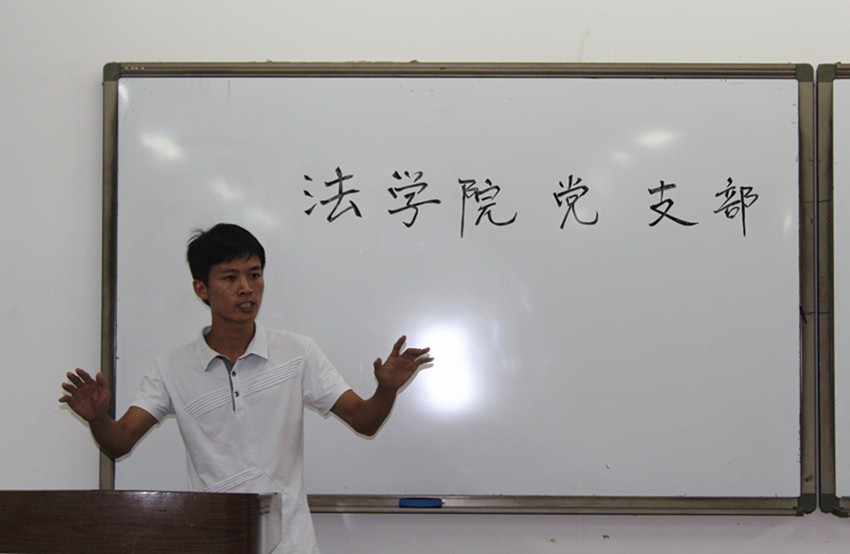 法学院党支部